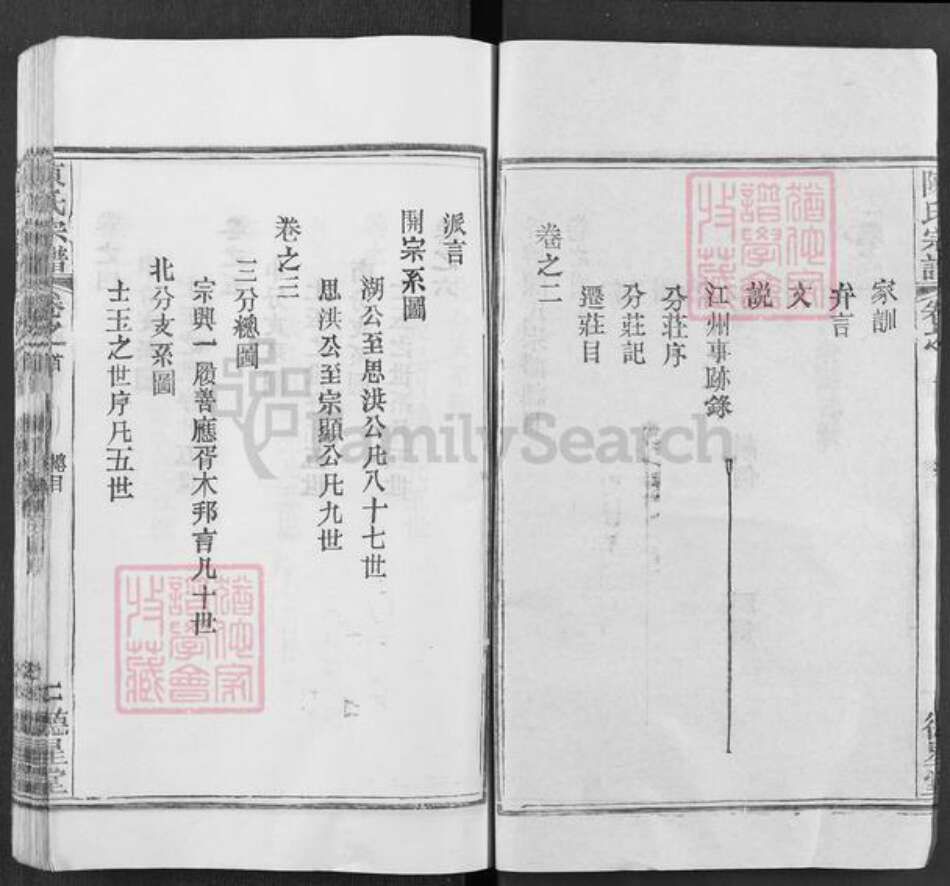 陳氏宗譜
家訓
弁言
文
説
江州事跡錄
分莊序
分莊記
遷莊目
卷之二
派言
開宗系圖
湖公至思洪公凡八十七世
思洪公至宗顯公凡九世
卷之三
三分總圖
宗興一履善應胥木邦育凡十世
北分支系圖
士玉之世序凡五世
氏宗譜
卷之首
總目
二
德星堂
收藏
譜學會
FamilySearch